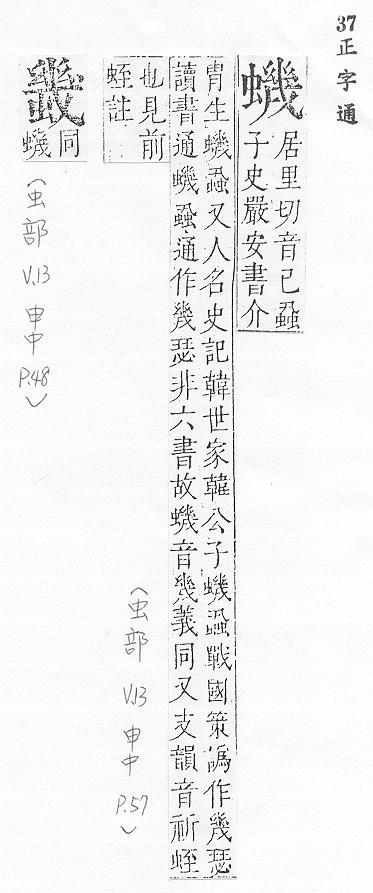 37正字通
蟣
居里切音已蝨
子史嚴安書介
胄生蟣蝨又人名史記韓世家韓公子蟣蝨戰國策譌作幾瑟
讀書通蟣蝨通作幾瑟非六書故蟣音幾義同又支韻音祈蛭
也見前
蛭註
(虫部 V.13 申中 P.57)
同
蟣
(虫部 V.13 申中 P.48)